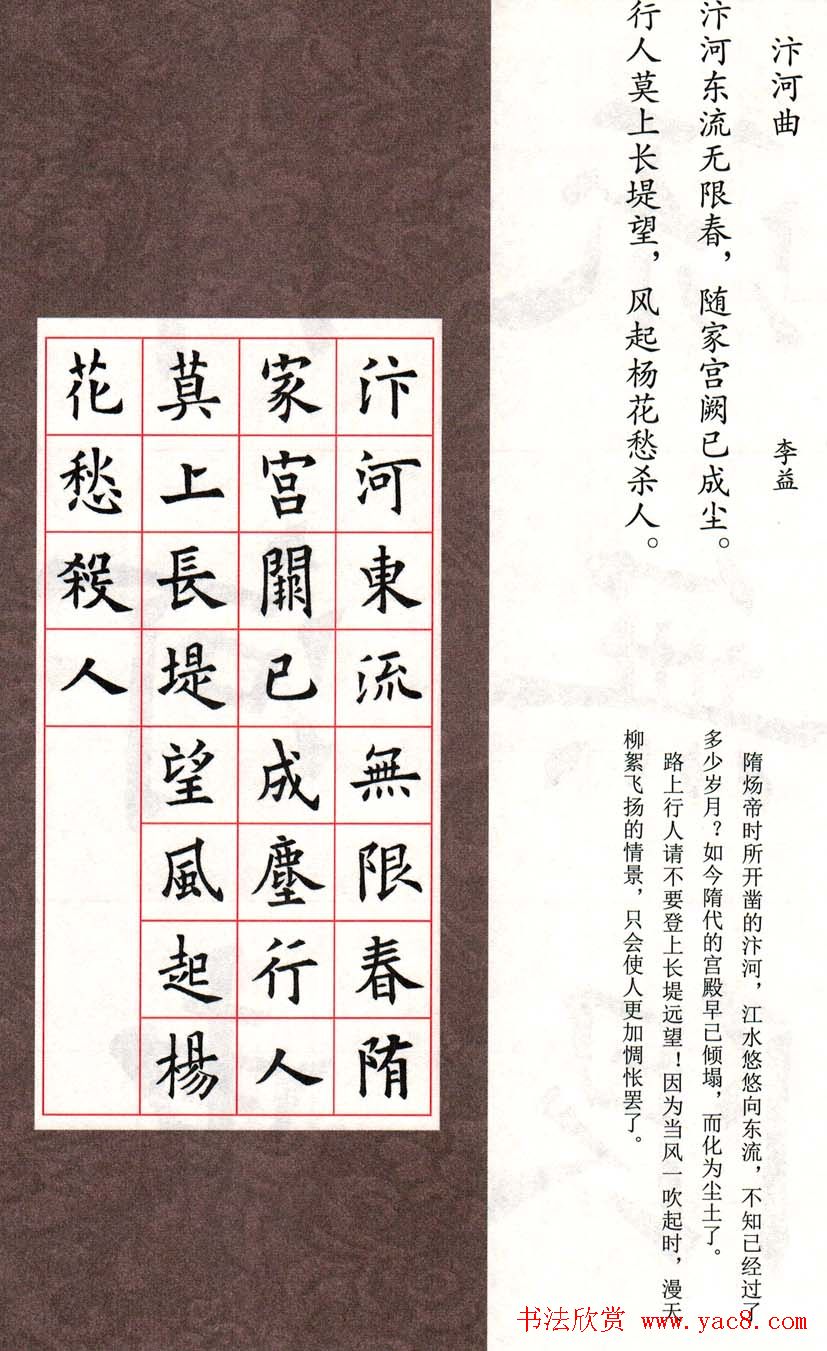 汴河曲
李益
汴河东流无限春，随家宫阙已成尘。
行人莫上长堤望，风起杨花愁杀人。
隋炀帝时所开凿的汴河，江水悠悠向东流，不知已经过了
多少岁月？如今隋代的宫殿早已倾塌，而化为尘土了。
路上行人请不要登上长堤远望！因为当风一吹起时，漫天
柳絮飞扬的情景，只会使人更加惆怅罢了。
汴河東流無限春隋
家宮闕已成塵行人
莫上長堤望風起楊
花愁殺人
书法欣赏 www.yac8.com